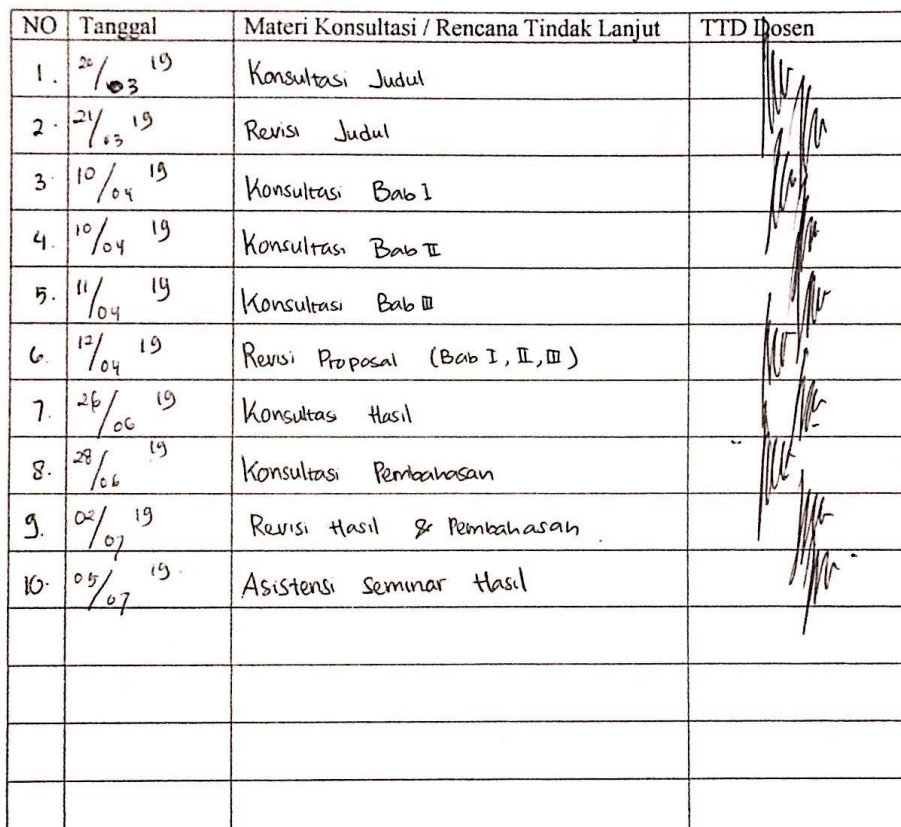 NO Tanggal Materi Konsultasi / Rencana Tindak Lanjut TTD Dosen
1. 20/03 19 Konsultasi Judul
2. 21/03 19 Revisi Judul
3. 10/04 19 Konsultasi Bab I
4. 10/04 19 Konsultasi Bab II
5. 11/04 19 Konsultasi Bab III
6. 12/04 19 Revisi Proposal (Bab I, II, III)
7. 26/06 19 Konsultasi Hasil
8. 28/06 19 Konsultasi Pembahasan
9. 02/07 19 Revisi Hasil & Pembahasan
10. 05/07 19 Asistensi Seminar Hasil